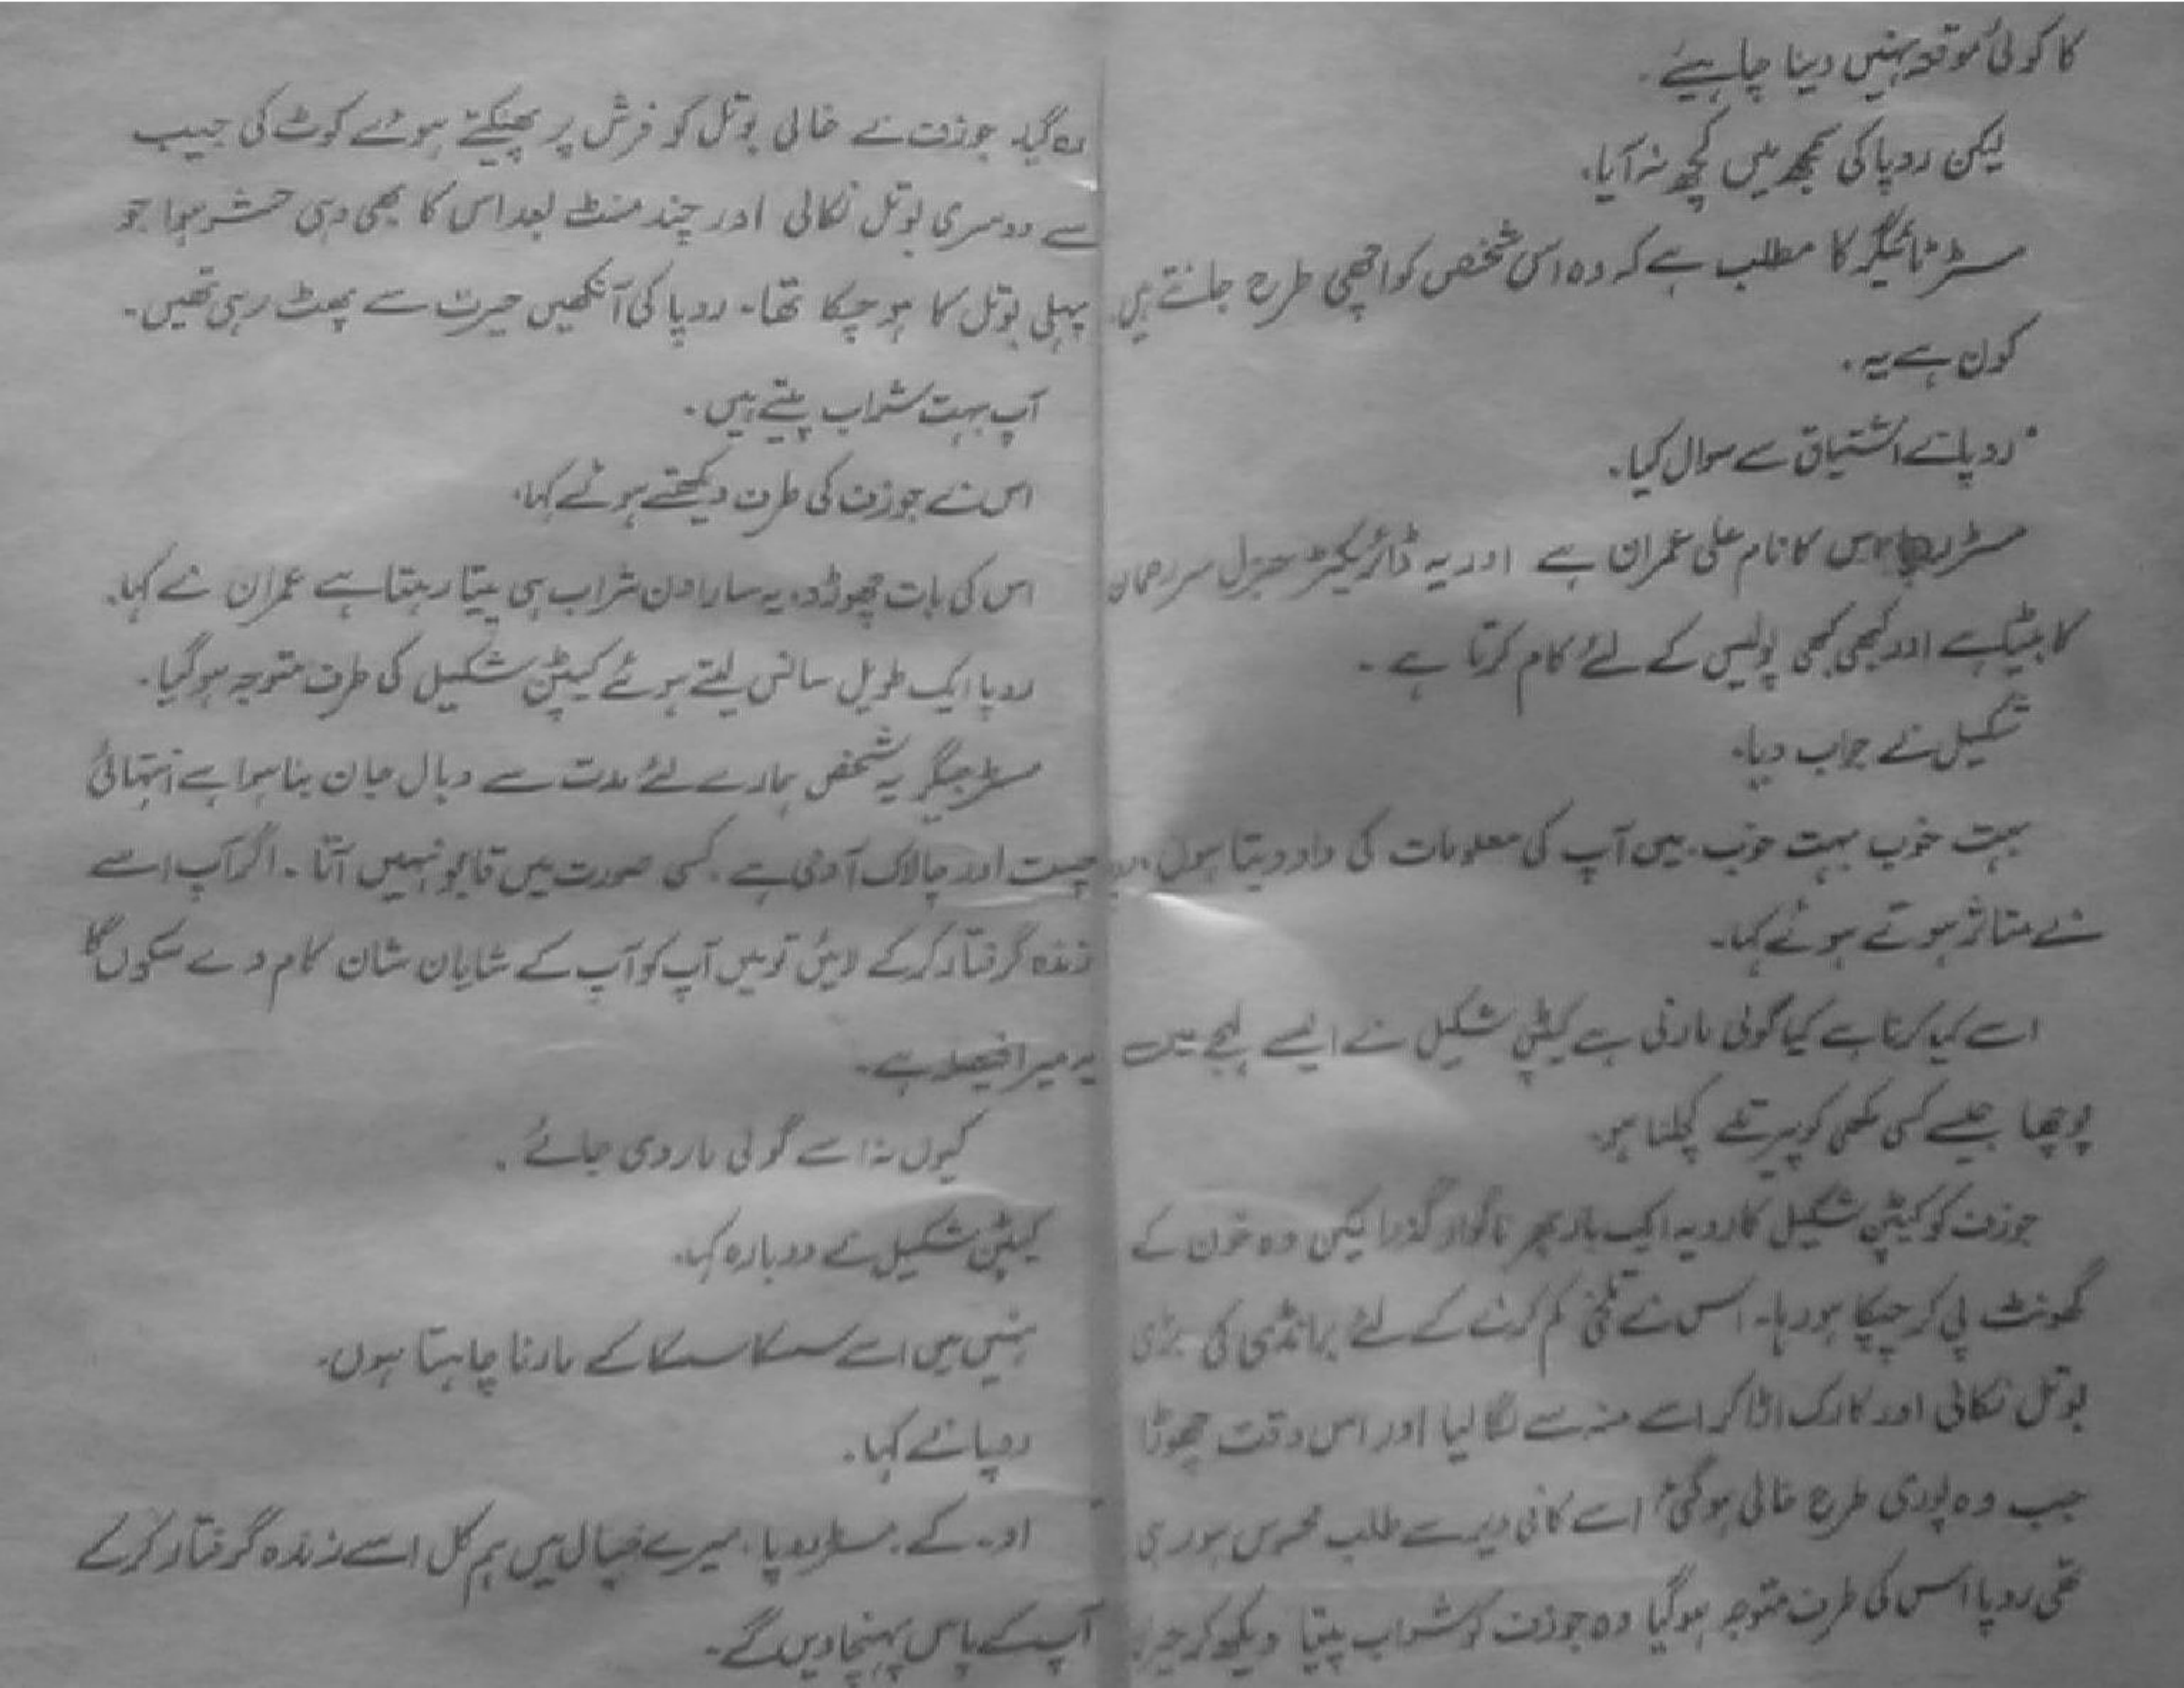 کا کوئی موقعہ نہیں دینا چاہیئے۔
لیکن روپا کی سمجھ میں کچھ نہ آیا۔
مسٹر ٹائیگر کا مطلب ہے کہ وہ اس شخص کو اچھی طرح جانتے ہیں
کون ہے یہ۔
روپا نے اشتیاق سے سوال کیا۔
مسٹر روپا اس کا نام علی عمران ہے اور یہ ڈائریکٹر جنرل سر رحمان
کا بیٹا ہے اور کبھی کبھی پولیس کے لئے کام کرتا ہے۔
شکیل نے جواب دیا۔
بہت خوب بہت خوب۔ میں آپ کی معلومات کی داد دیتا ہوں۔
نے متاثر ہوتے ہوئے کہا۔
اسے کیا کرنا ہے کیا گولی مارنی ہے کیپٹن شکیل نے ایسے لہجے میں
پوچھا جیسے کسی مکھی کو پیر تلے کچلنا ہو۔
جوزف کو کیپٹن شکیل کا رویہ ایک بار پھر ناگوار گذرا لیکن وہ خون کے
گھونٹ پی کر چپکا ہو رہا۔ اس نے تلخی کم کرنے کے لئے برانڈی کی بڑی
بوتل نکالی اور کارک اڑا کر اسے منہ سے لگا لیا اور اس وقت چھوڑا
جب وہ پوری طرح خالی ہو گئی اسے کافی دیر سے طلب محسوس ہو رہی
تھی روپا اس کی طرف متوجہ ہو گیا وہ جوزف کو شراب پیتا دیکھ کر حیران
رہ گیا۔ جوزف نے خالی بوتل کو فرش پر پھینکتے ہوئے کوٹ کی جیب
سے دوسری بوتل نکالی اور چند منٹ بعد اس کا بھی وہی حشر ہوا جو
پہلی بوتل کا ہو چکا تھا۔ روپا کی آنکھیں حیرت سے پھٹ رہی تھیں۔
آپ بہت شراب پیتے ہیں۔
اس نے جوزف کی طرف دیکھتے ہوئے کہا۔
اس کی بات چھوڑو۔ یہ سارا دن شراب ہی پیتا رہتا ہے عمران نے کہا۔
روپا ایک طویل سانس لیتے ہوئے کیپٹن شکیل کی طرف متوجہ ہو گیا۔
مسٹر جیگر یہ شخص ہمارے لئے مدت سے وبال جان بنا ہوا ہے انتہائی
چست اور چالاک آدمی ہے۔ کسی صورت میں قابو نہیں آتا۔ اگر آپ اسے
زندہ گرفتار کر کے لائیں تو میں آپ کو آپ کے شایان شان کام دے سکوں گا
یہ میرا فیصلہ ہے۔
کیوں نہ اسے گولی مار دی جائے۔
کیپٹن شکیل نے دوبارہ کہا۔
نہیں میں اسے سسکا سسکا کے مارنا چاہتا ہوں۔
روپا نے کہا۔
او۔ کے۔ مسٹر روپا۔ میرے خیال میں ہم کل اسے زندہ گرفتار کر کے
آپ کے پاس پہنچا دیں گے۔